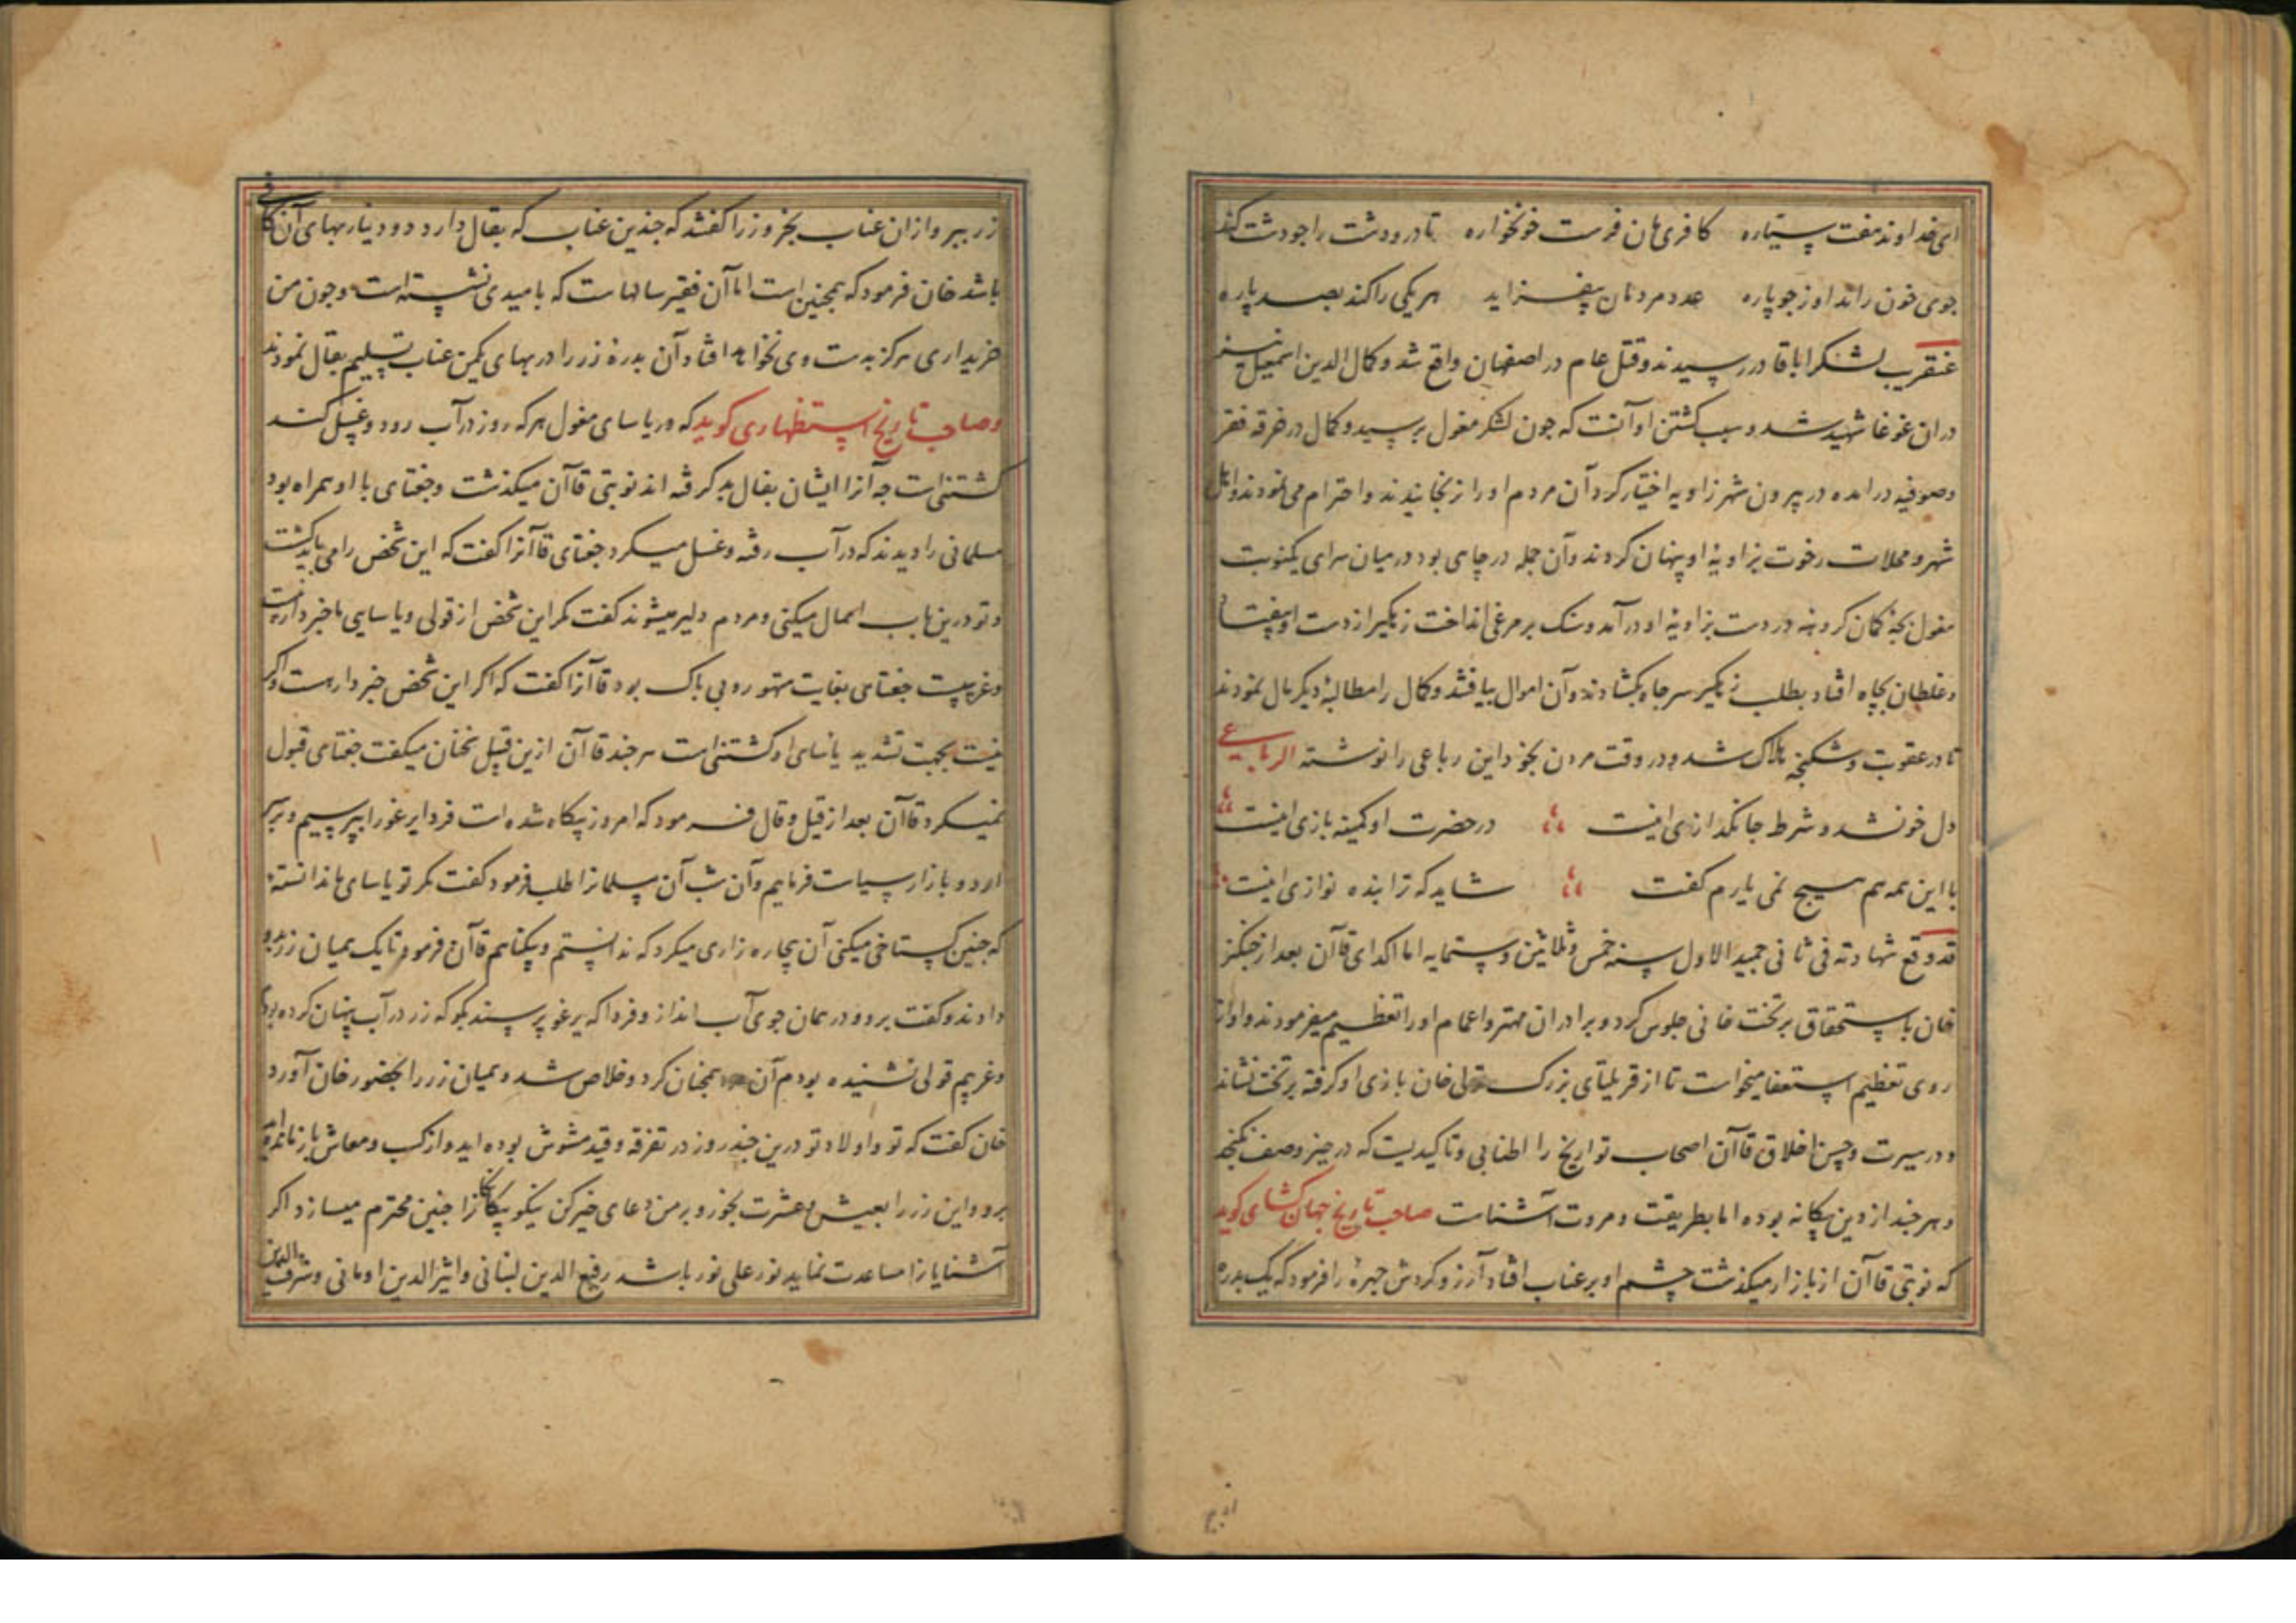 ای خداوند هفت سیاره کافری هان فرست خونخواره تا درودشت را چودشت کند
جوی خون راند او ز جوپاره عدد مردمان بیفزاید هر یکی را کند بصد پاره
عنقریب لشکر اباقا در رسیدند و قتل عام در اصفهان واقع شد و کمال الدین اسمعیل نیز
دران غوغا شهید شد و سبب کشتن او آنست که چون لشکر مغول برسید و کمال در خرقه فقر
و صوفیه در امده در بیرون شهر زاویه اختیار کرد آن مردم او را نرنجانیدند و احترام می نمودند و اهل
شهر و محلات رخوت بزاویۀ او پنهان کردند و آن جمله در چاهی بود در میان سرای یکنوبت
مغول بچۀ کمان کروهه در دست بزاویۀ او در آمد و سنک بر مرغی انداخت زهکیر از دست او بیفتاد
و غلطان بچاه افتاد بطلب زهکیر سر چاه بکشادند و آن اموال بیافتند و کمال را مطالبۀ دیکر مال نمودند
تا در عقوبت و شکنجه هلاک شد و در وقت مردن بخود این رباعی را نوشته الرباعی
دل خونشد و شرط جانکدازی اینست در حضرت او کمینه بازی اینست
با این همه هم هیچ نمی یارم کفت شاید که ترا بنده نوازی اینست
قد وقع شهادته فی ثانی جمید الاول سنه خمس و ثلاثین و ستمایه اما اکدای قاآن بعد از چنکز
خان باستحقاق بر تخت خانی جلوس کرد و برادران مهتر و اعمام او را تعظیم میفرمودند و او از
روی تعظیم استعفا میخواست تا از قریلتای بزرک تولی خان بازوی او کرفته بر تخت نشاند
و در سیرت و حسن اخلاق قاآن اصحاب تواریخ را اطنابی و تاکیدیست که در حیز وصف نکنجد
و هر چند از دین بیکانه بوده اما بطریقت و مروت آشناست صاحب تاریخ جهان کشای کوید
که نوبتی قاآن از بازار میکذشت چشم او بر عناب افتاد آرزو کردش چهرۀ را فرمود که یک بدره
زر ببر و ازان عناب بخر وزرا کفتند که چندین عناب که بقال دارد دو دینار بهای آن کافی
باشد خان فرمود که همچنین است اما آن فقیر سالهاست که بامیدی نشسته است و چون من
خریداری هرکز بدست وی نخواهد افتاد آن بدرۀ زر را در بهای یکمن عناب تسلیم بقال نمودند
و صاحب تاریخ استظهاری کوید که در یاسای مغول هر که روز در آب رود و غسل کند
کشتنی است چه آنرا ایشان بفال بد کرفته اند نوبتی قاآن میکذشت و جغتای با او همراه بود
مسلمانی را دیدند که در آب رفته و غسل میکرد جغتای قاآنرا کفت که این شخص را می باید کشت
و تو درین باب اهمال میکنی و مردم دلیر میشوند کفت مکر این شخص از قولی و یاسایی ما خبردار نیست
و غریبست جغتای بغایت متهور و بی باک بود قاآنرا کفت که اکر این شخص خبردار هست و اکر
نیست بجهت تشدید یاسای او کشتنی است هر چند قاآن ازین قبیل سخنان میکفت جغتای قبول
نمیکرد قاآن بعد از قیل و قال فرمود که امروز بیکاه شده است فردا یرغو را بپرسیم و بر سر
اردو بازار سیاست فرمایم و آن شب آن مسلمانرا طلب فرمود کفت مکر تو یاسای ما ندانستۀ
که چنین کستاخی میکنی آن بیچاره زاری میکرد که ندانستم و بیکناهم قاآن فرمود تا یک همیان زر بدو
دادند و کفت برو و در همان جوی آب انداز و فردا که یرغو پرسند بکو که زر در آب پنهان کرده بودم
و غریبم قولی نشنیده بودم آن همچنان کرد و خلاص شد و همیان زر را بحضور خان آورد
خان کفت که تو و اولاد تو درین چند روز در تفرقه و قید مشوش بوده اید و از کسب و معاش باز مانده اید
برو و این زر را بعیش و عشرت بخور و بر من دعای خیر کن نیکو بیکانکانرا چنین محترم میسازد اکر
آشنایانرا مساعدت نماید نور علی نور باشد رفیع الدین لبنانی و اثیر الدین اومانی و شرف الدین